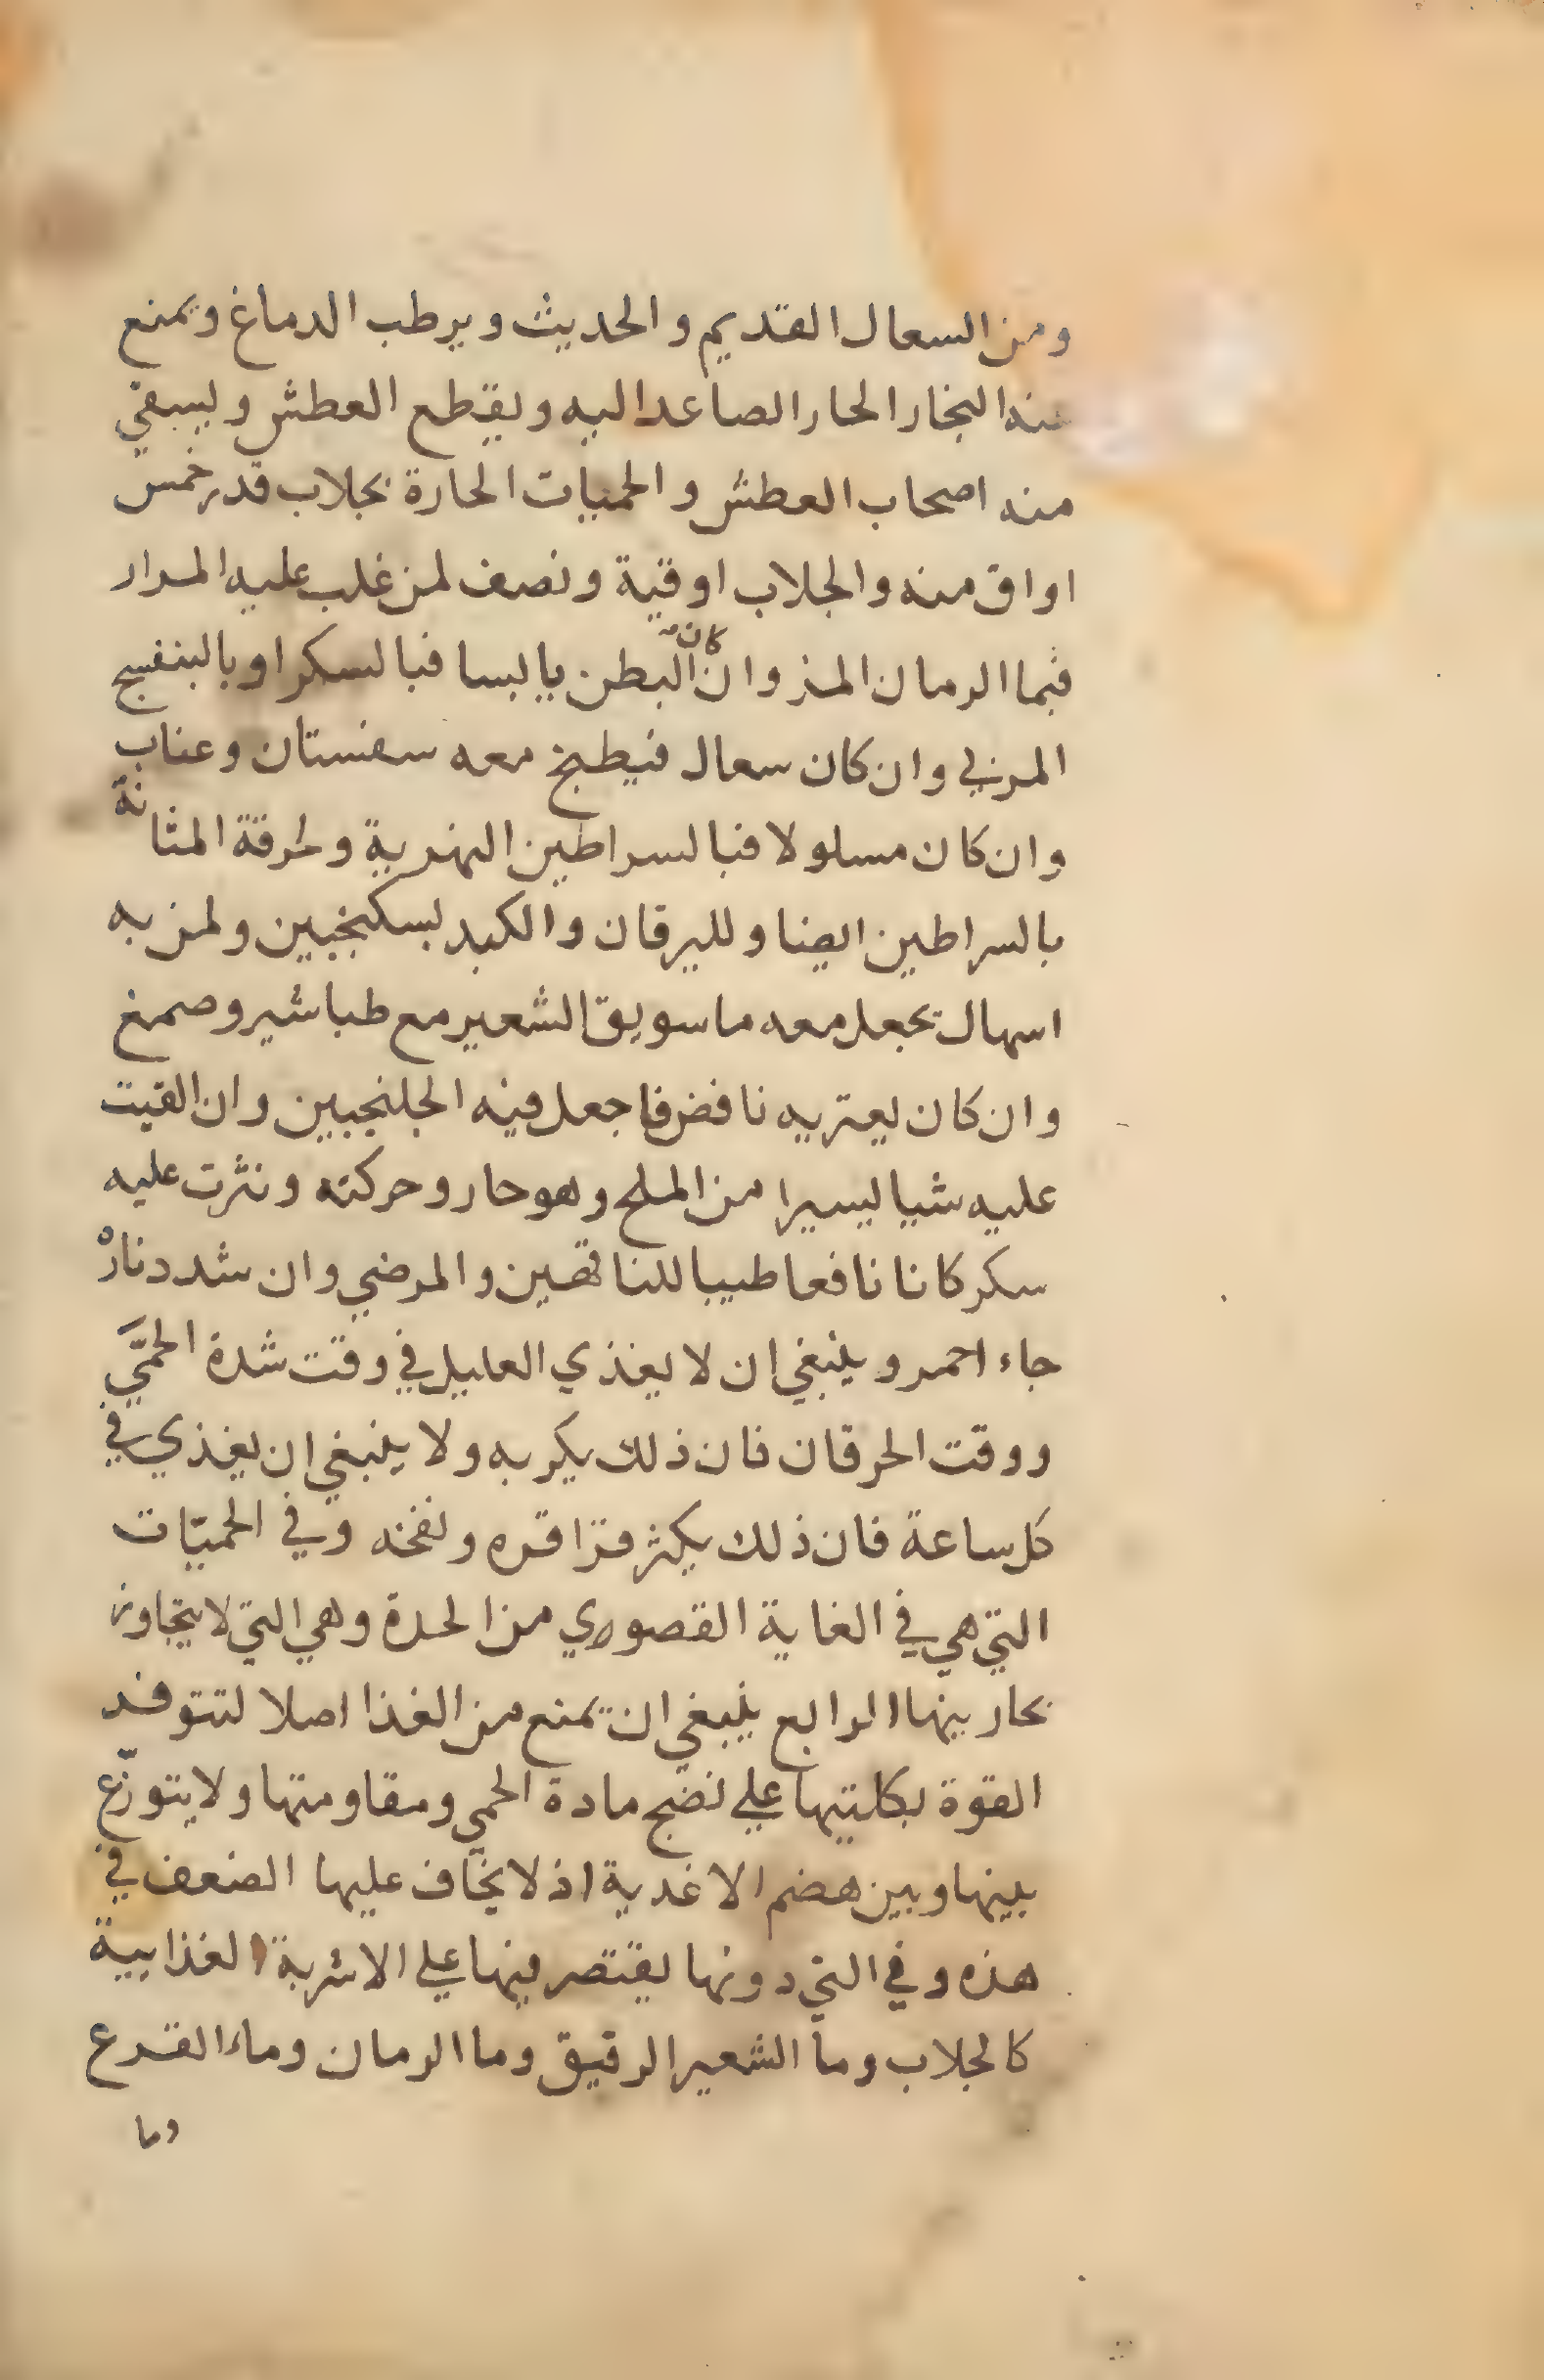 ومن السعال القديم والحديث ويرطب الدماغ ويمنع
عنه البخار الحار الصاعد اليه ويقطع العطش ويسقي
منه اصحاب العطش والحميات الحارة بجلاب قدر خمس
اواق منه والجلاب اوقية ونصف لمن غلب عليه المرار
فبما الرمان المز وان كان البطن يابسا فبالسكر او بالبنفسج
المربي وان كان سعال فيطبخ معه سفستان وعناب
وان كان مسلولا فبالسراطين النهرية ولحرقة المثانة
بالسراطين ايضا ولليرقان والكبد بسكنجبين ولمن به
اسهال يجعل معه ما سويق الشعير مع طباشير وصمغ
وان كان يعتريه نافض فاجعل فيه الجلنجبين وان القيت
عليه شيا يسيرا من الملح وهو حار وحركته ونثرت عليه
سكر كانا نافعا طيبا للناقهين والمرضي وان شدد ناره
جاء احمر وينبغي ان لا يغذي العليل في وقت شدة الحمَّي
ووقت الحرقان فان ذلك يكربه ولا ينبغي ان يغذي في
كل ساعة فان ذلك يكثر قراقره ونفخه وفي الحميّات
التي هي في الغاية القصوري من الحدة وهي التي لا يتجاوز
بحاربيها الرابع ينبغي ان يمنع من الغذا اصلا لتتوفد
القوة بكليتها علي نضج مادة الحمي ومقاومتها ولا يتوزّع
بينها وبين هضم الاغدية اذ لا يخاف عليها الضعف في
هذه وفي التي دونها يقتصر فيها علي الاشربة الغذايية
كالجلاب وما الشعير الرقيق وما الرمان وماء القرع
وما